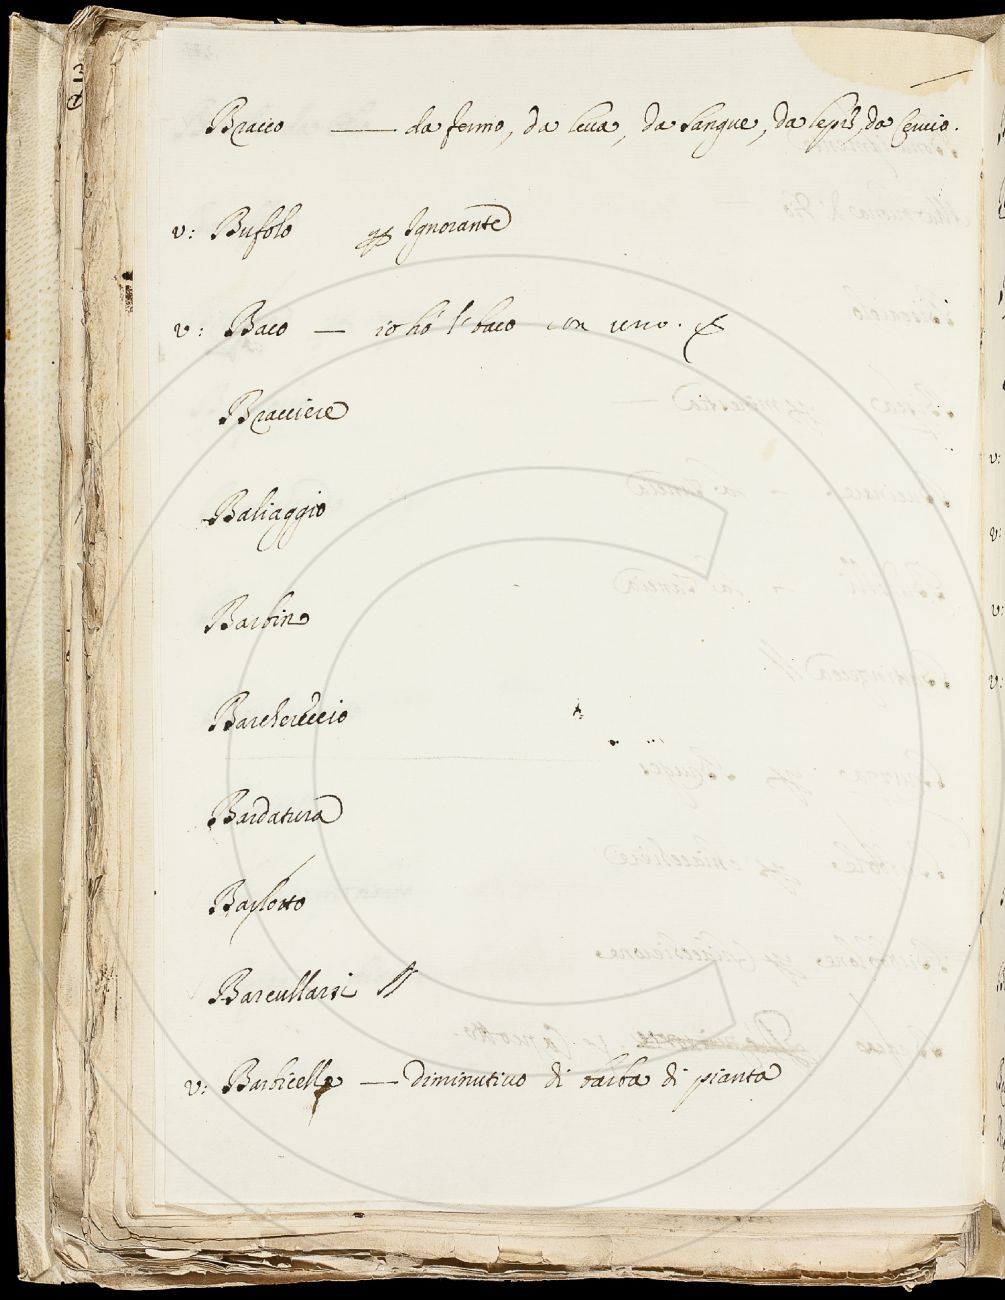 Bracco — da fermo, da leva, da sangue, da lepri, da
v: Bufolo p Ignorante
v: Baco — io hò il baco con uno.
Bracciere
Baliaggio
Barbino
Barcheruccio
Bardatura
Barlotto
Barcullarsi
v: Barbicella — Diminutivo di barba di pianta